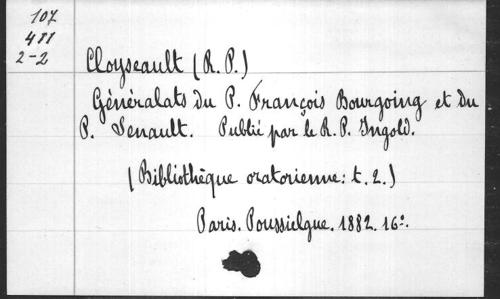 107
488
2-2
Cloyseault (R. P.)
Généralats du P. François Bourgoing et du
P. Senault. Publié par le R. P. Ingold.
(Bibliothèque oratorienne: t. 2.)
Paris. Poussielgue. 1882. 16º.